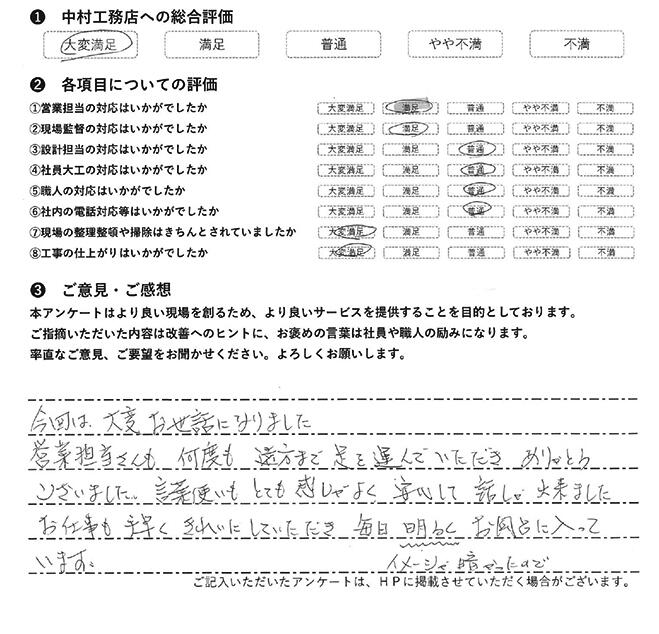 ❶ 中村工務店への総合評価
大変満足 満足 普通 やや不満 不満
❷ 各項目についての評価
①営業担当の対応はいかがでしたか 大変満足 満足 普通 やや不満 不満
②現場監督の対応はいかがでしたか 大変満足 満足 普通 やや不満 不満
③設計担当の対応はいかがでしたか 大変満足 満足 普通 やや不満 不満
④社員大工の対応はいかがでしたか 大変満足 満足 普通 やや不満 不満
⑤職人の対応はいかがでしたか 大変満足 満足 普通 やや不満 不満
⑥社内の電話対応等はいかがでしたか 大変満足 満足 普通 やや不満 不満
⑦現場の整理整頓や掃除はきちんとされていましたか 大変満足 満足 普通 やや不満 不満
⑧工事の仕上がりはいかがでしたか 大変満足 満足 普通 やや不満 不満
❸ ご意見・ご感想
本アンケートはより良い現場を創るため、より良いサービスを提供することを目的としております。
ご指摘いただいた内容は改善へのヒントに、お褒めの言葉は社員や職人の励みになります。
率直なご意見、ご要望をお聞かせください。よろしくお願いします。
今回は、大変お世話になりました
営業担当さんも 何度も 遠方まで 足を運んでいただき ありがとう
ございました。言葉使いも とても 感じがよく 安心して 話しが 出来ました
お仕事も 手早く きれいにしていただき 毎日 明るく お風呂に入って
います。 イメージが暗かったので
ご記入いただいたアンケートは、HPに掲載させていただく場合がございます。